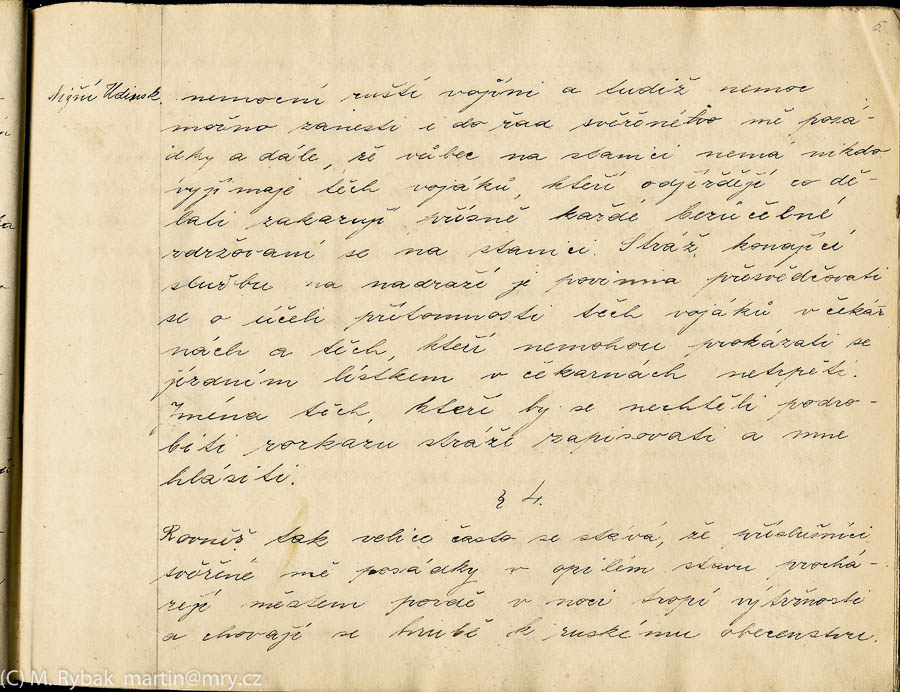 5.
Nižní Udinsk.
nemocní ruští vojíni a tudíž nemoc
možno zanesti i do řad svěřené mě posá-
dky a dále, že vůbec na stanici nemá nikdo
vyjímaje těch vojáků, kteří odjíždějí co dě-
lati zakazuji přísně každé bezúčelné
zdržování se na stanici. Stráž konající
službu na nadraží je povinna přesvědčovati
se o účeli přítomnosti těch vojáků v čekár
nách a těch, kteří nemohou prokázati se
jízdním lístkem v čekarnách netrpěti.
Jména těch, kteří by se nechtěli podro-
biti rozkazu stráže zapisovati a mne
hlásiti.
§ 4.
Rovněž tak velice často se stává, že příslušníci
svěřéné mě posádky v opilém stavu prochá-
zejí městem pozdě v noci tropí výtržnosti
a chovají se hrubě k ruskému obecenstvu.
(C) M. Rybak martin@mry.cz